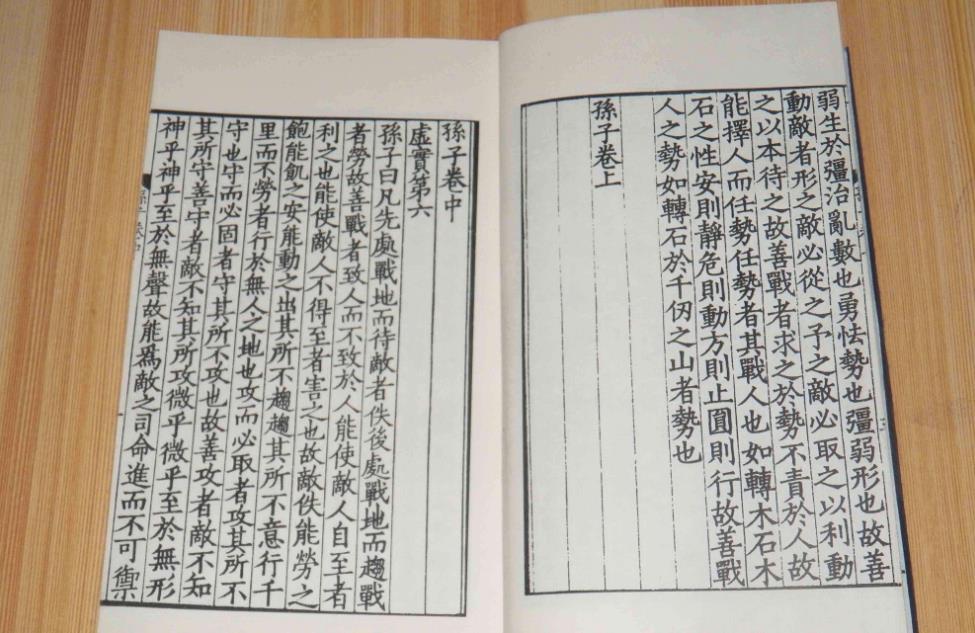 弱生於彊治亂數也勇怯勢也彊弱形也故善
動敵者形之敵必從之予之敵必取之以利動
之以本待之故善戰者求之於勢不責於人故
能擇人而任勢任勢者其戰人也如轉木石木
石之性安則靜危則動方則止圓則行故善戰
人之勢如轉石於千仞之山者勢也
孫子卷上
孫子卷中
虛實第六
孫子曰凡先處戰地而待敵者佚後處戰地而趨戰
者勞故善戰者致人而不致於人能使敵人自至者
利之也能使敵人不得至者害之也故敵佚能勞之
飽能飢之安能動之出其所不趨趨其所不意行千
里而不勞者行於無人之地也攻而必取者攻其所不
守也守而必固者守其所不攻也故善攻者敵不知
其所守善守者敵不知其所攻微乎微乎至於無形
神乎神乎至於無聲故能爲敵之司命進而不可禦